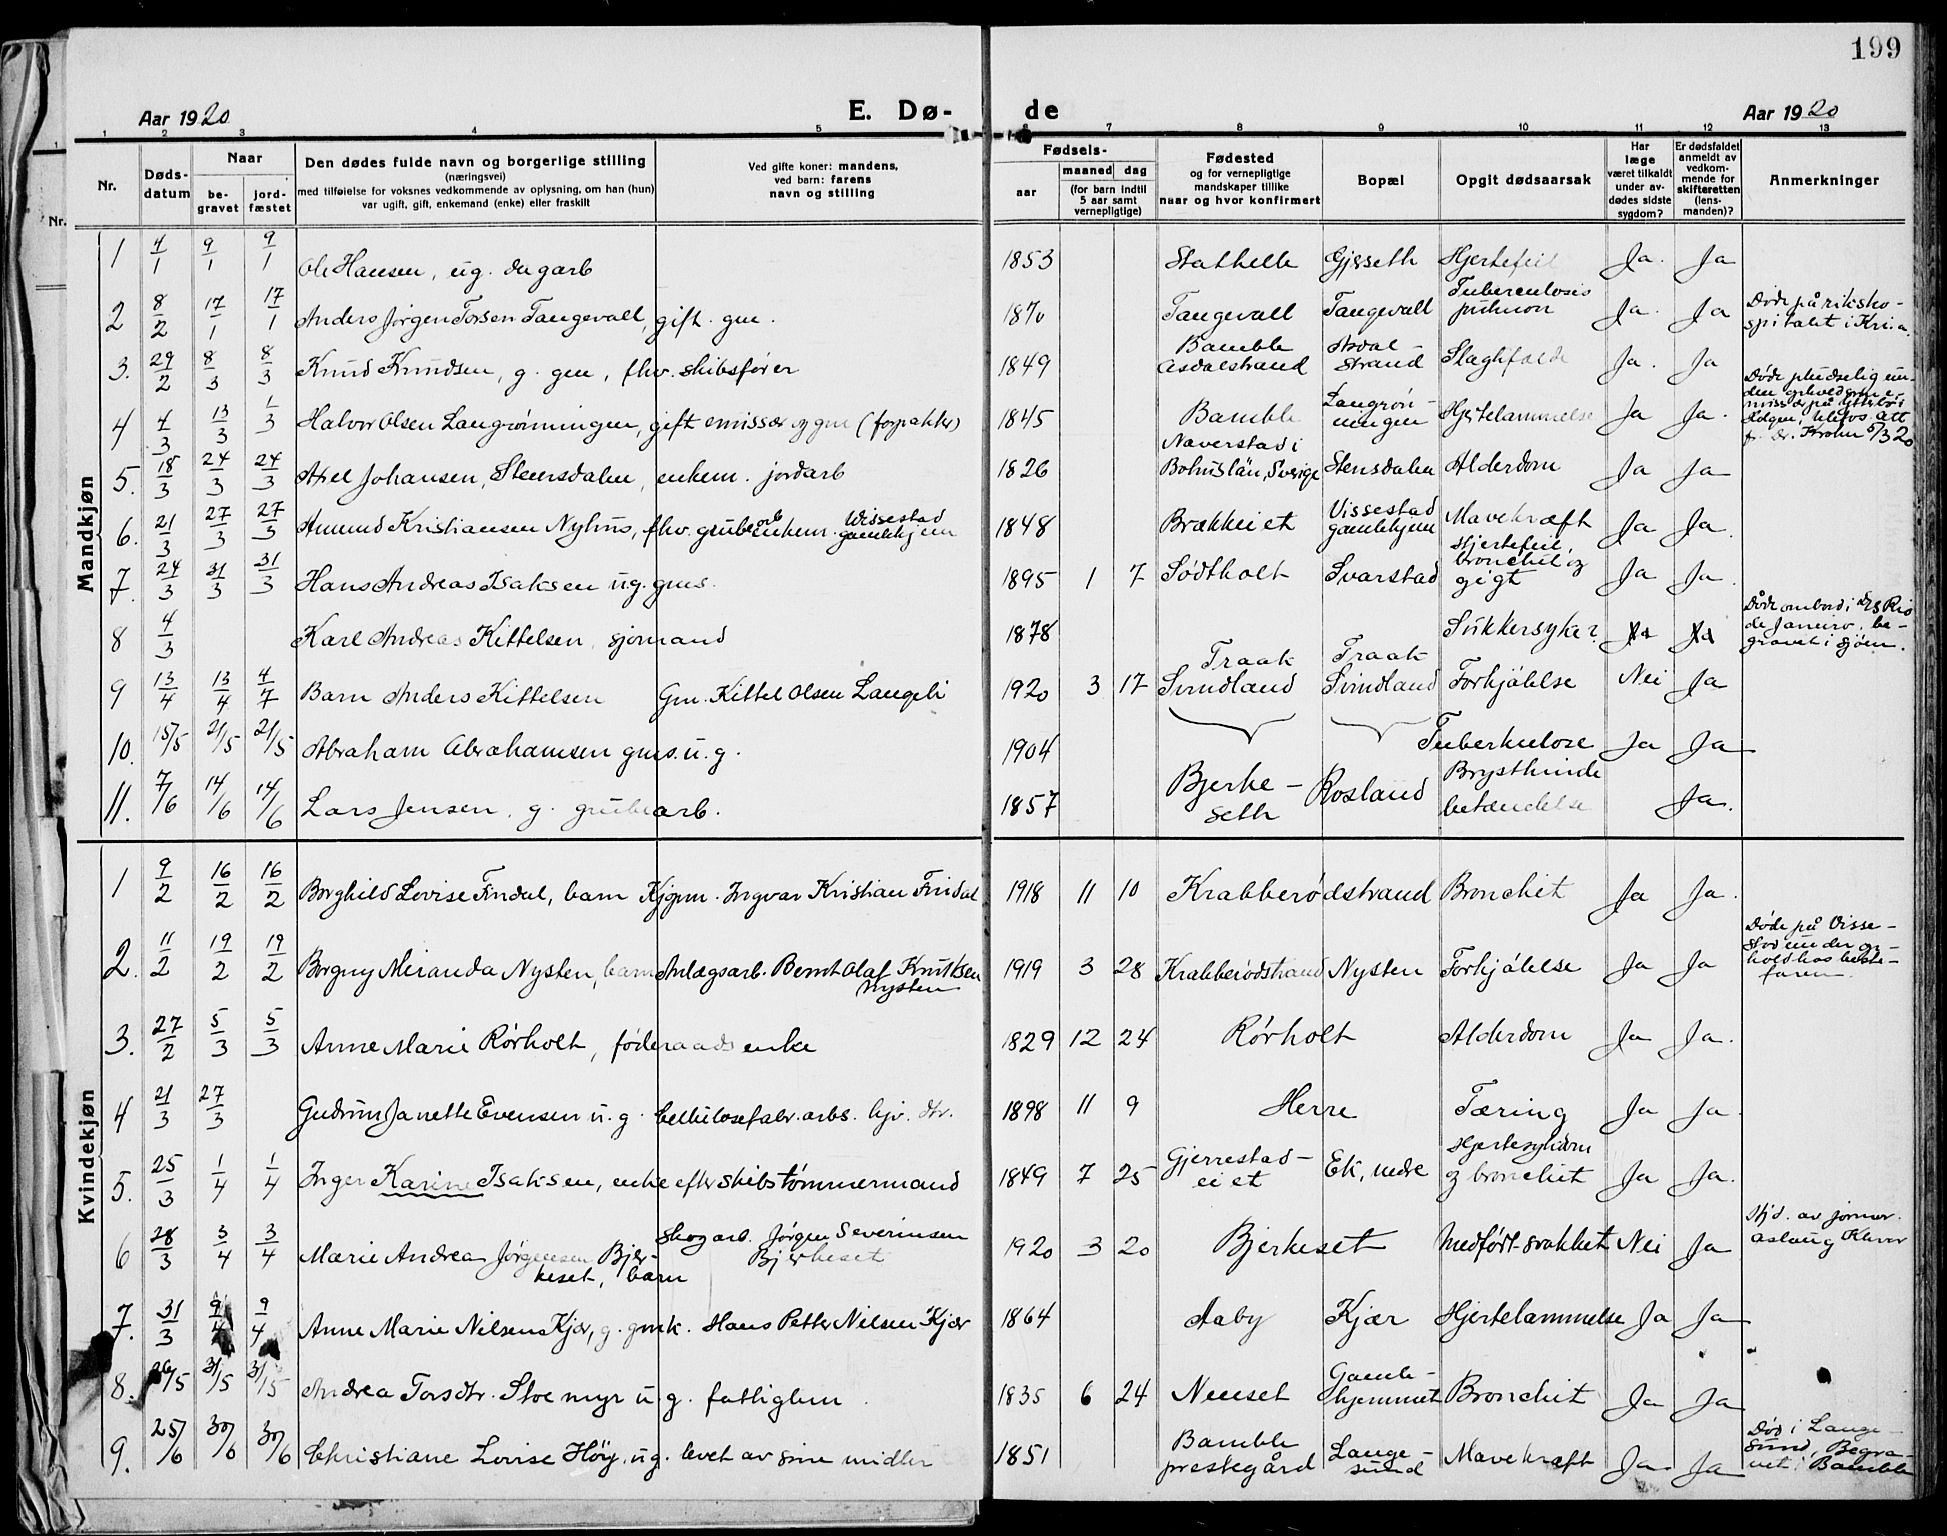 199
Aar 1920
E. Dø-
de
Aar 1920
1 2 3 4 5 6 7 8 9 10 11 12 13
Nr.
Døds-
datum
Naar
be-
gravet
jord-
fæstet
Den dødes fulde navn og borgerlige stilling
(næringsvei)
med tilføielse for voksnes vedkommende av oplysning, om han (hun)
var ugift, gift, enkemand (enke) eller fraskilt
Ved gifte koner: mandens,
ved barn: farens
navn og stilling
Fødsels-
aar
maaned
dag
(for barn indtil
5 aar samt
vernepligtige)
Fødested
og for vernepligtige
mandskaper tillike
naar og hvor konfirmert
Bopæl
Opgit dødsaarsak
Har
læge
været tilkaldt
under av-
dødes sidste
sygdom?
Er dødsfaldet
anmeldt av
vedkom-
mende for
skifteretten
(lens-
manden)?
Anmerkninger
Mandkjøn
1 4/1 9/1 9/1 Ole Hansen, ug. dagarb 1853 Stathelle Gjsseth Hjertefeil Ja. Ja
2 8/2 17/1 17/1 Anders Jørgen Torsen Tangevall, gift. gm. 1870 Tangevall Tangevall Tuberculosis
pulmon Ja. Ja Døde på riksho-
spitalet i Kr.ia.
3. 29/2 8/3 8/3 Knud Knudsen, g. gm, fhv. skibsfører 1849 Bamble
Asdalstrand Asdal-
strand Slagtfælde Ja. Ja
4 4/3 13/3 1/3 Halvor Olsen Langrønningen, gift emissær og gm (forpakter) 1845 Bamble Langrøn-
ningen Hjertelammelse Ja Ja Døde pludselig un-
der ophold som e-
missær på
Helgen, Ulefos. Att
fr. dr. Krohn 6/3 20
5. 18/3 24/3 24/3 Axel Johansen, Steensdalen, enkem. jordarb 1826 Naverstad i
Bohuslän, Sverige Stensdalen Alderdom Ja Ja
6. 21/3 27/3 27/3 Amund Kristiansen Nyhus, fhv. grubearb enkem. Wissestad
gamlehjem 1848 Brækkeiet Vissestad
gamlehjem Mavekræft Ja Ja.
7. 24/3 31/3 31/3 Hans Andreas Isaksen u.g. gms. 1895 1 7 Sødtholt Svarstad Hjertefeil,
bronchit og
gigt Ja Ja.
8 4/3 Karl Andreas Kittelsen, sjømand 1878 Sukkersyke? Ja Ja Døde ombord i D/S Rio
de Janeiro, be-
gravet i sjøen.
9 13/4 13/4 4/7 Barn Anders Kittelsen Gm. Kittel Olsen Langeli 1920 3 17 Traak
Svindland Traak
Svindland Forkjølelse Nei Ja
10. 15/5 21/5 21/5 Abraham Abrahamsen gms. u.g. 1904 Tuberkulose Ja Ja
11. 7/6 14/6 14/6 Lars Jensen, g. grubearb. 1857 Bjerke-
seth Rosland Brysthinde
betændelse Ja.
Kvindekjøn
1 9/2 16/2 16/2 Borghild Lovise Findal, barn Kjøpm. Ingvar Kristian Findal 1918 11 10 Krabberødstrand Bronchit Ja Ja.
2. 11/2 19/2 19/2 Borgny Miranda Nysten, barn Anlægsarb. Bernt Olaf Knutsen
Nysten 1919 3 28 Krabberødstrand Nysten Forkjølelse Ja Ja Døde på Visse-
stad under op-
hold hos beste-
faren
3. 27/2 5/3 5/3 Anne Marie Rørholt, føderaadsenke 1829 12 24 Rørholt Alderdom Ja Ja.
4 21/3 27/3 Gudrun Janette Evensen u.g. Cellulosefabr. arbs. hjv. dtr. 1898 11 9 Herre Tæring Ja Ja.
5. 25/3 1/4 1/4 Inger Karine Isaksen, enke efter skibstømmermand 1849 7 25 Gjerrestad-
eiet Ek, nedre Hjertesygdom
og bronchit Ja Ja.
6 28/3 3/4 3/4 Marie Andrea Jørgensen Bjer-
keset, barn Skogarb. Jørgen Severinsen
Bjerkeset 1920 3 20 Bjerkeset Medført svakhet Nei Ja Hjd. av jormor.
Aslaug
7. 31/3 9/4 9/4 Anne Marie Nilsen Kjær, g. gmk. Hans Petter Nilsen Kjær 1864 Aaby Kjær Hjertelammelse Ja Ja
8. 26/5 31/5 31/5 Andrea Torsdtr. Stoemyr u.g. fattiglem. 1835 6 24 Nenset Gamle-
hjemmet Bronchit Ja Ja
9. 25/6 30/6 30/6 Christiane Lovise Höy, ug. levet av sine midler 1851 Bamble
prestegård Lange-
sund Mavekræft Ja Ja Død i Lange-
sund, Begra-
vet i Bamble